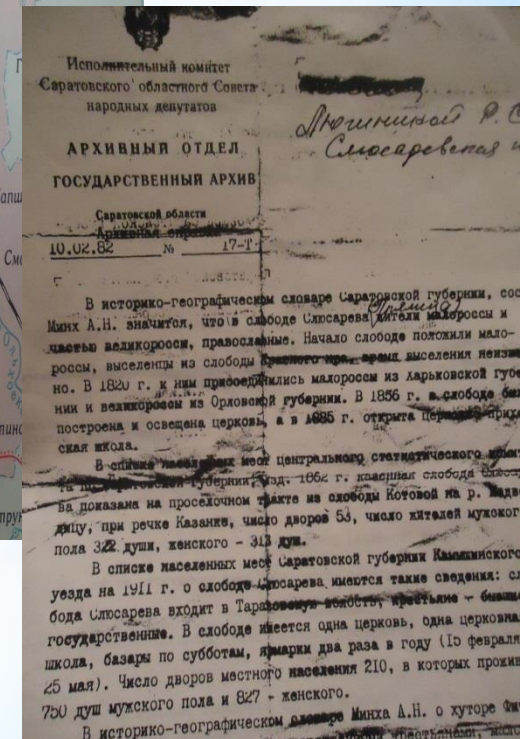 Исполнительный комитет
Саратовского областного Совета
народных депутатов
АРХИВНЫЙ ОТДЕЛ
ГОСУДАРСТВЕННЫЙ АРХИВ
Саратовской области
Архивная
10.02.82 № 17-Т
Р. С
Слюсаревская
В историко-географическом словаре Саратовской губернии, сос
Минх А.Н. значится, что в слободе Слюсарева жители малороссы и
частью великороссы, православные. Начало слободе положили мало-
россы, выселенцы из слободы Красного Яра, время выселения неизв
но. В 1820 г. к ним присоединились малороссы из Харьковской губе
нии и великороссы из Орловской губернии. В 1856 г. в слободе бы
построена и освещена церковь, а в 1885 г. открыта церковно прихо
ская школа.
В списке населенных мест центрального статистического комит
та по Саратовской губернии, изд. 1862 г. казенная слобода
ва показана на проселочном тракте из слободы Котовой на р. Медве
дицу, при речке Казанке, число дворов 53, число жителей мужског
пола 322 души, женского - 313 душ.
В списке населенных мест Саратовской губернии Камышинского
уезда на 1911 г. о слободе Слюсарева имеются такие сведения: сл
бода Слюсарева входит в Тарасовскую волость, крестьяне - бывши
государственные. В слободе имеется одна церковь, одна церковна
школа, базары по субботам, ярмарки два раза в году (15 февраля
25 мая). Число дворов местного населения 210, в которых прожив
750 душ мужского пола и 827 - женского.
В историко-географическом словаре Минха А.Н. о хуторе